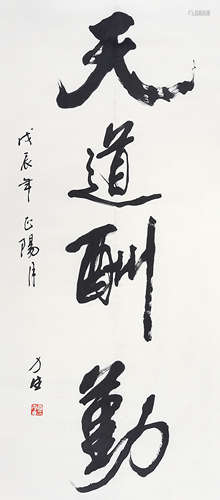 天道酬勤
戊辰年 正陽月
方生